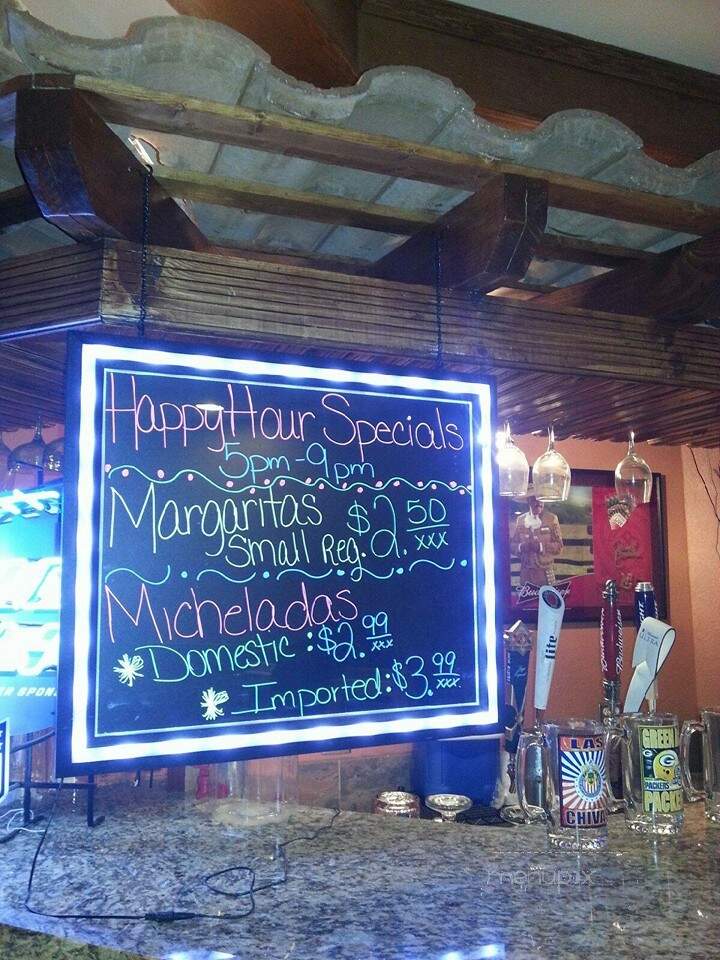 Happy Hour Specials
5pm - 9pm
Margaritas $2.50
xxx
Small Reg.
Micheladas
* Domestic : $2.99
xxx
* Imported : $3.99
xxx
lite
Budweiser
LAS
CHIVA
GREEN
PACKERS
PACK
menupix